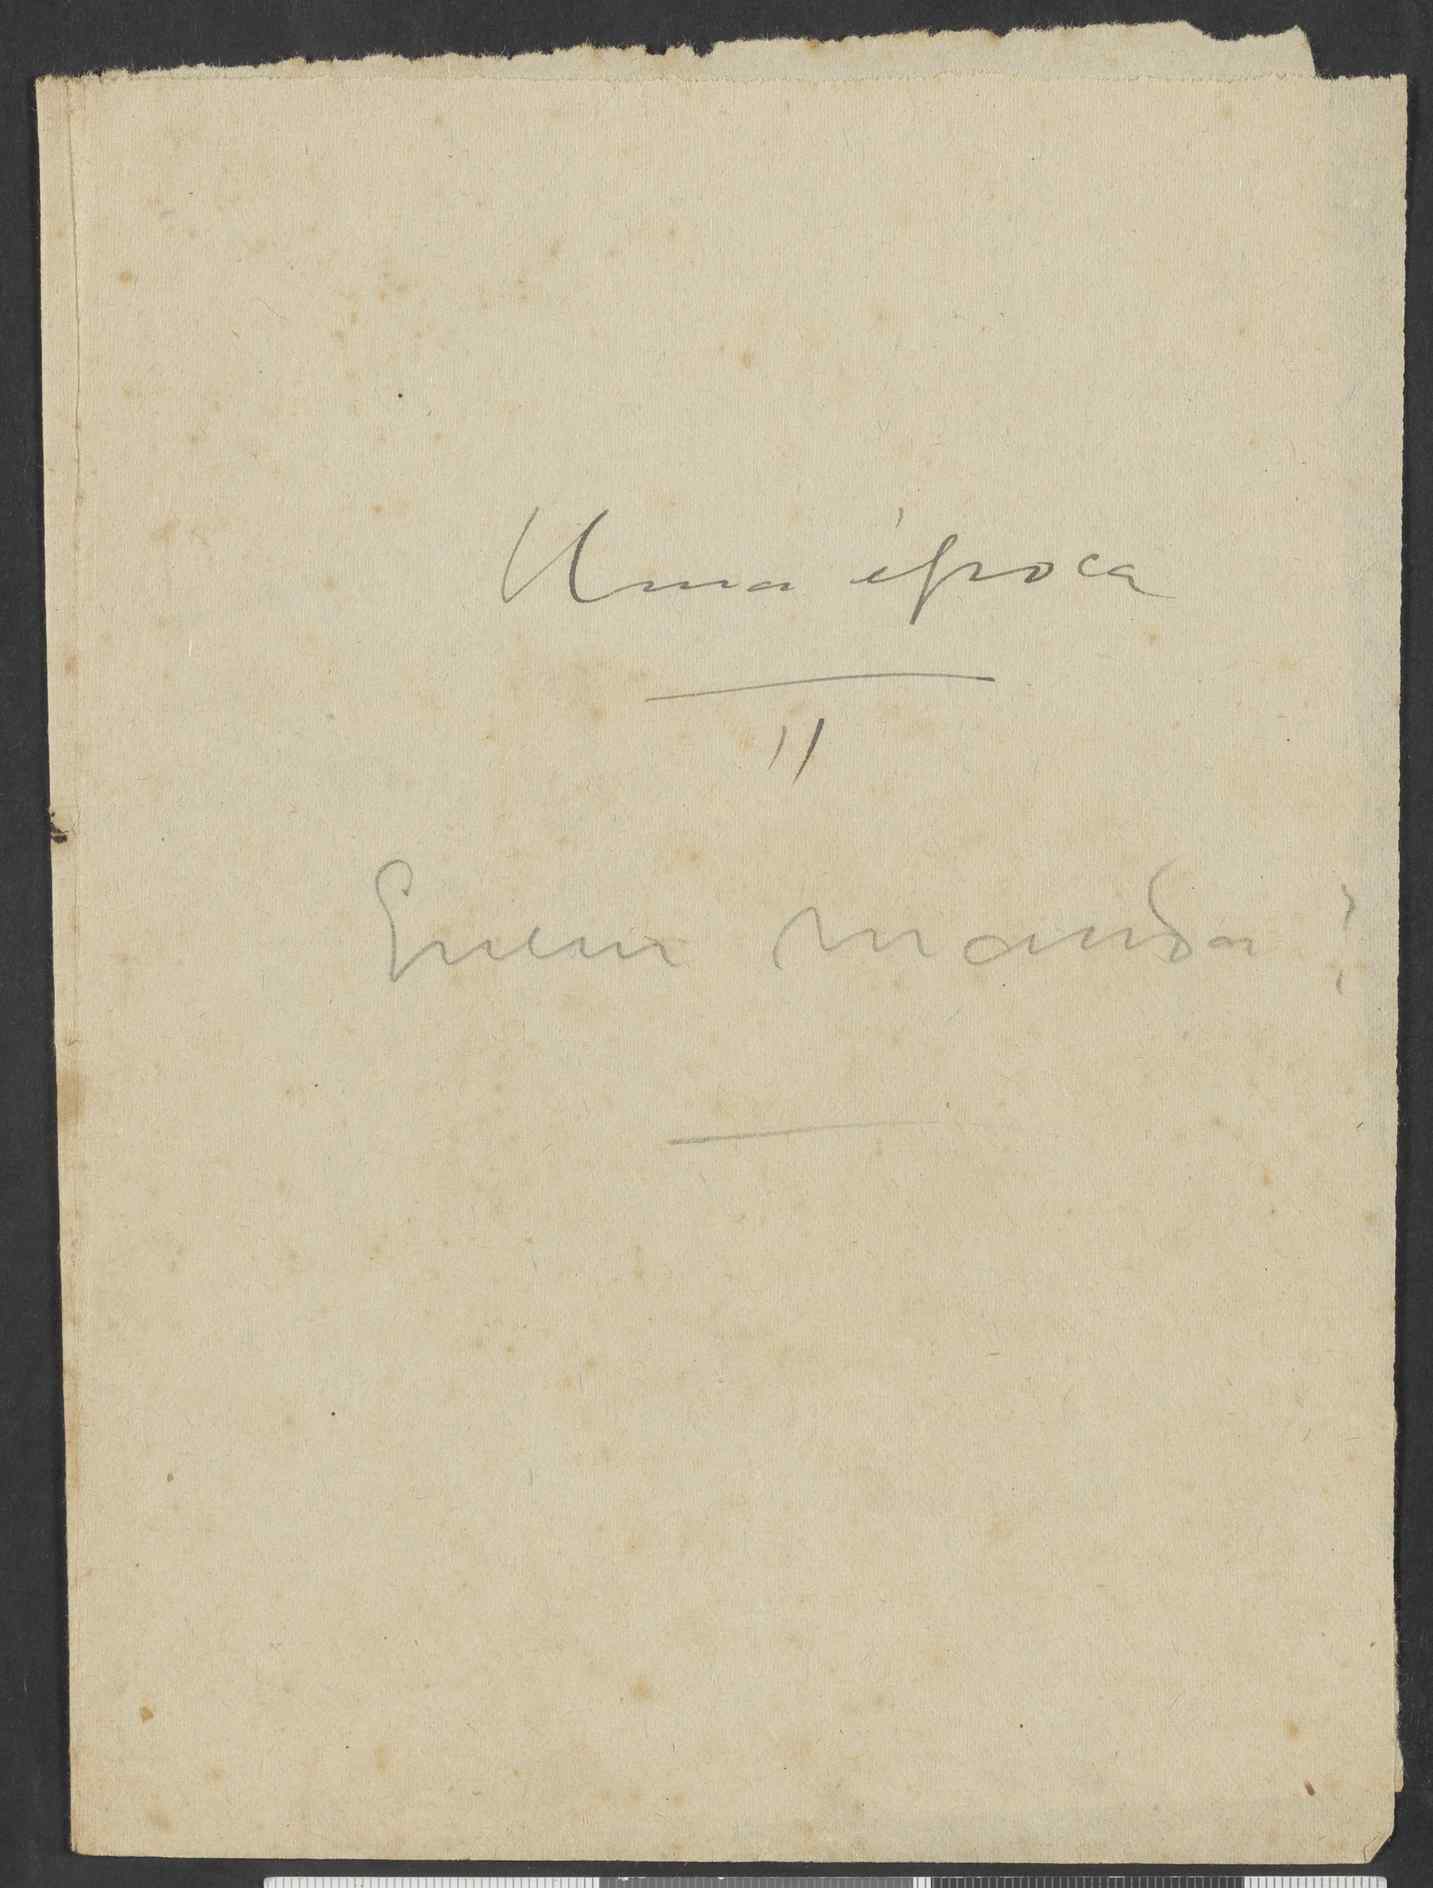 Uma época
II
Quem manda?